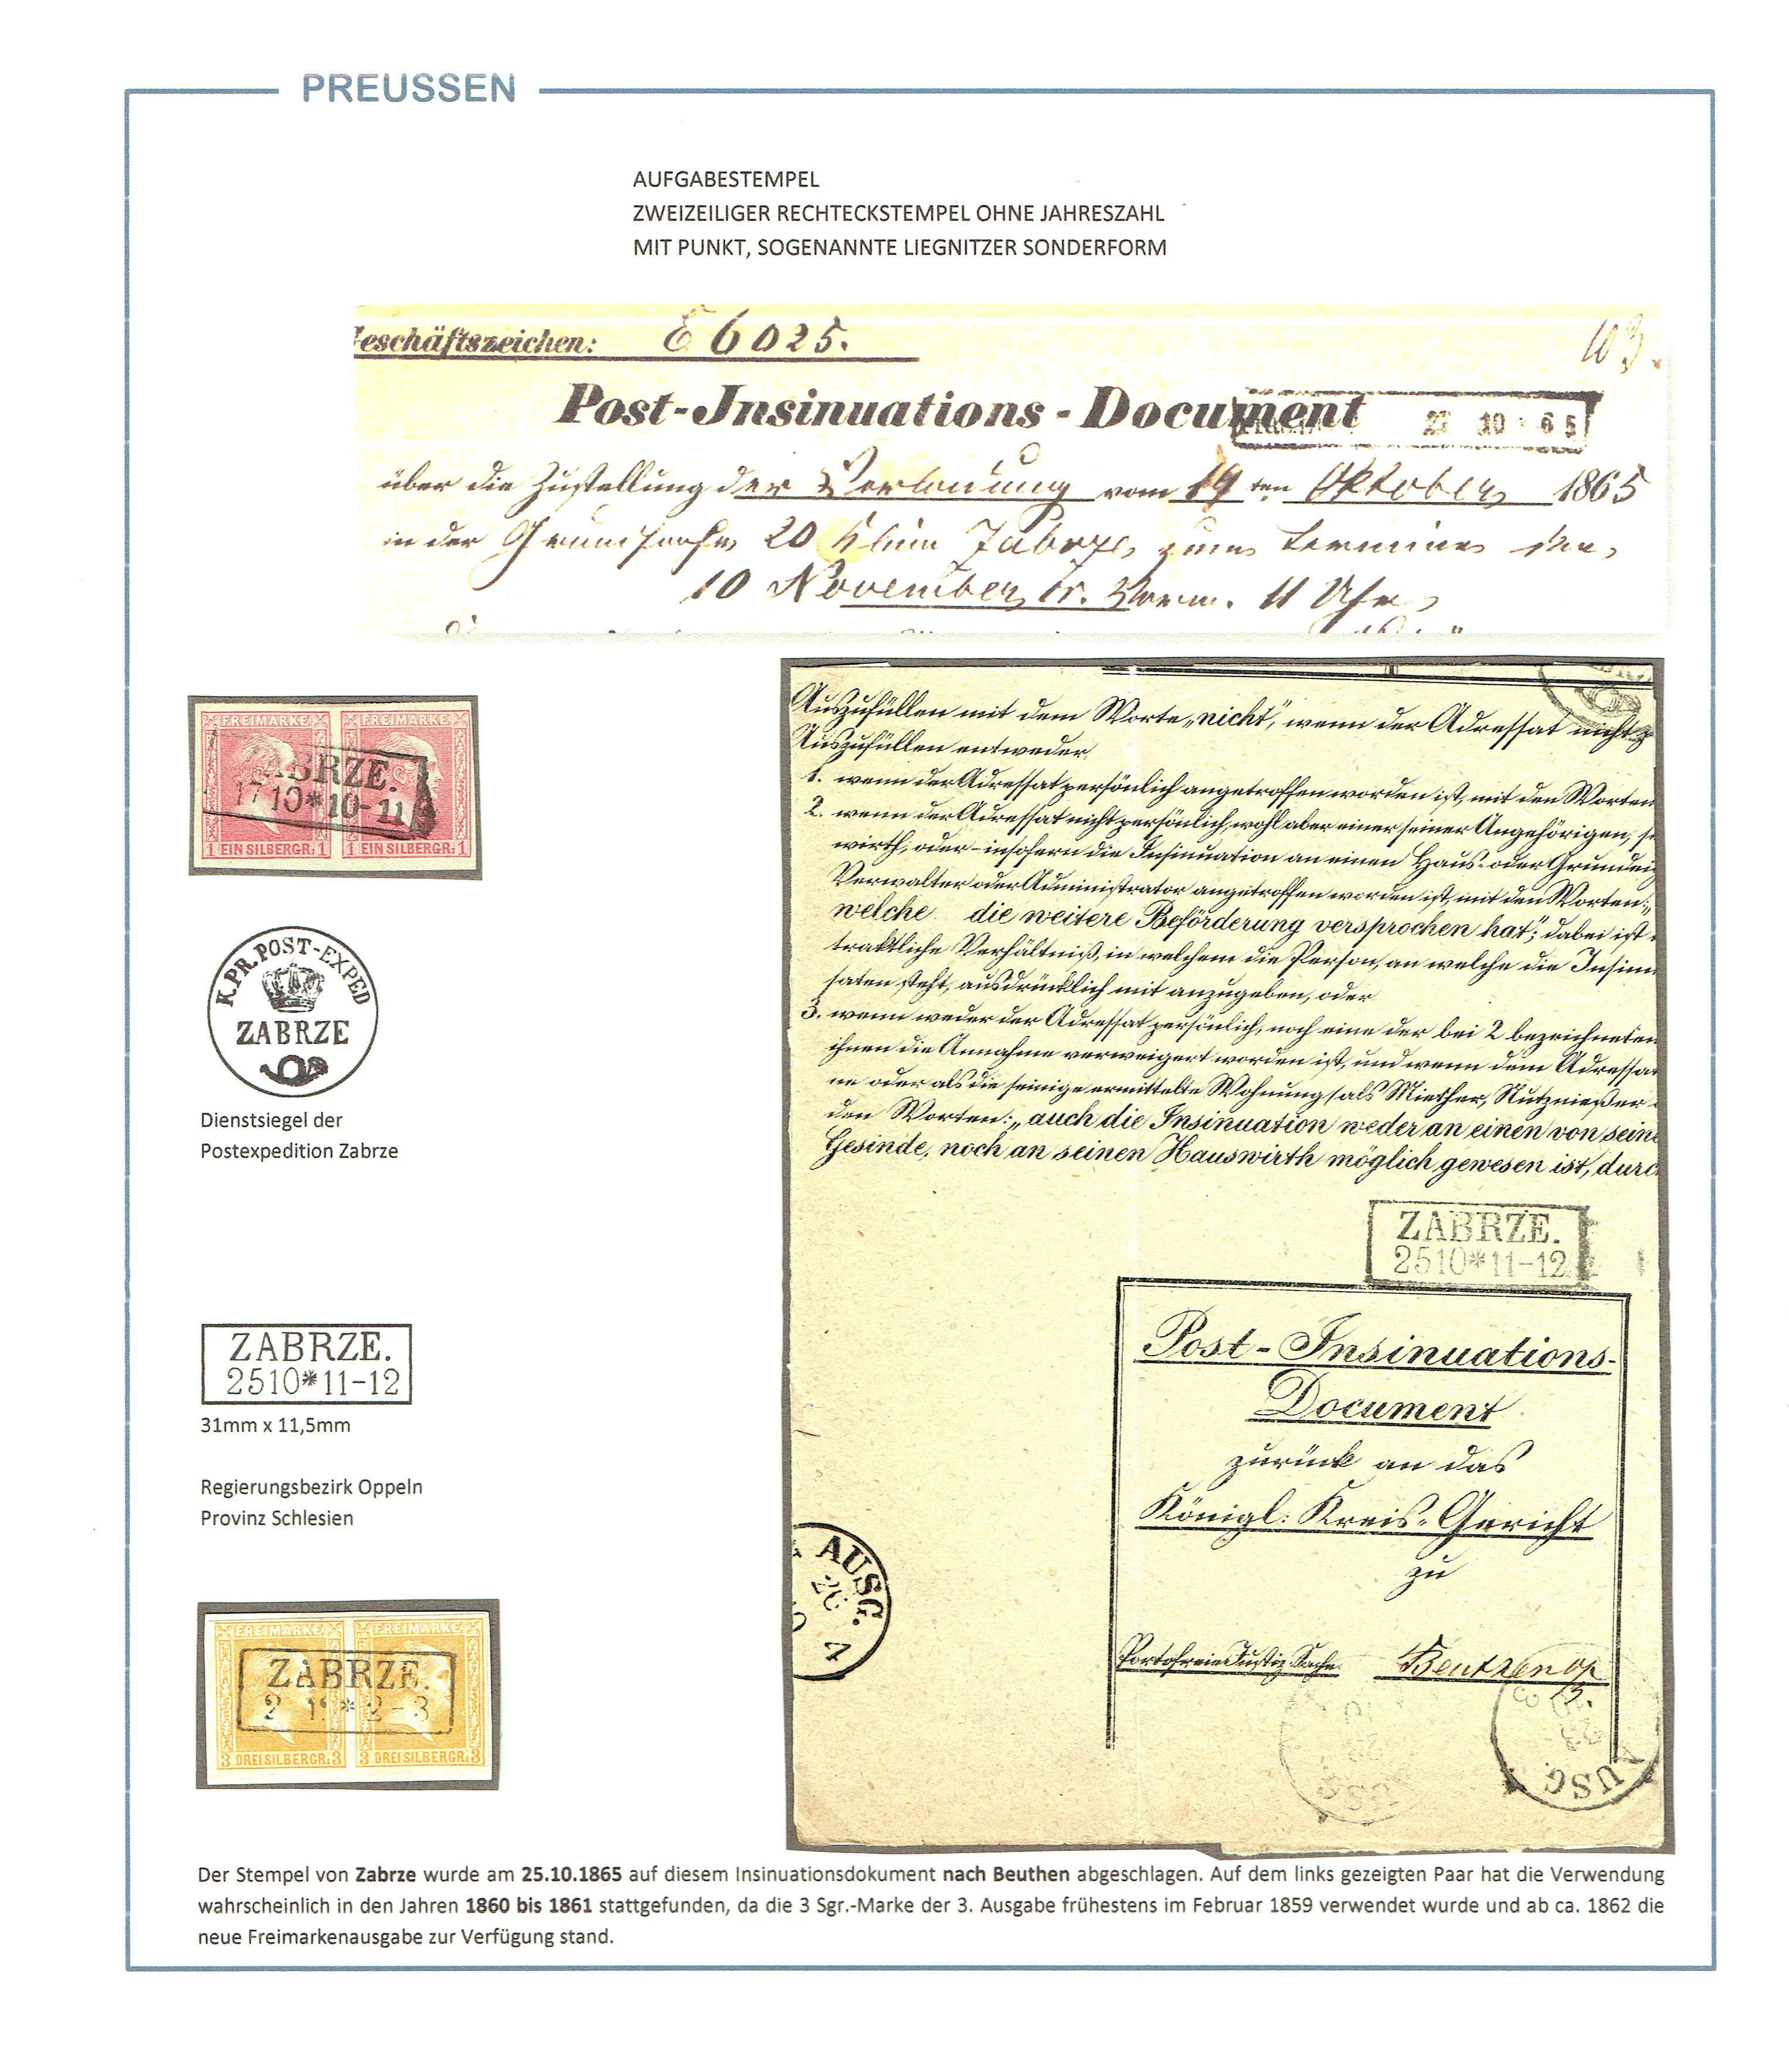 PREUSSEN
AUFGABESTEMPEL
ZWEIZEILIGER RECHTECKSTEMPEL OHNE JAHRESZAHL
MIT PUNKT, SOGENANNTE LIEGNITZER SONDERFORM
eschäftszeichen: E 6025.
103.
Post-Insinuations-Document
10 65
über die Zustellung der Vorladung vom 19ten Oktober 1865
in der 20 Klein Zabrze, zum Termine den
10 November Vorm. 11 Uhr
FREIMARKE FREIMARKE
ZABRZE.
17 10*10-11
1 EIN SILBERGR: 1 1 EIN SILBERGR: 1
K.PR.POST-EXPED
ZABRZE
Dienstsiegel der
Postexpedition Zabrze
ZABRZE.
2510*11-12
31mm x 11,5mm
Regierungsbezirk Oppeln
Provinz Schlesien
FREIMARKE FREIMARKE
ZABRZE.
2 1 *2-3
3 DREI SILBERGR: 3 3 DREI SILBERGR: 3
Auszufüllen mit dem Worte „nicht“, wenn der Adressat nicht
Auszufüllen entweder
1. wenn der Adressat persönlich angetroffen worden ist, mit den Worten
2. wenn der Adressat nicht persönlich, wohl aber einer seiner Angehörigen, se
wirth, oder – insofern die Insinuation an einen Haus- oder Grundei
Verwalter oder Administrator angetroffen worden ist, mit den Worten: „
welche die weitere Beförderung versprochen hat“; dabei ist
traktliche Verhältniß, in welchem die Person, an welche die Insinu
saten steht, ausdrücklich mit anzugeben, oder
3. wenn weder der Adressat persönlich, noch eine der bei 2 bezeichneten
ihnen die Annahme verweigert worden ist, und wenn dem Adressat
ne oder als die seinige ermittelte Wohnung (als Miether, Nutznießer
den Worten: „auch die Insinuation weder an einen von seine
Gesinde, noch an seinen Hauswirth möglich gewesen ist, durc
ZABRZE.
2510*11-12
Post-Insinuations-
Document
zurück an das
Königl: Kreis-Gericht
zu
Portofreie Justiz-Sache. Beuthen
AUSG.
AUSG
Der Stempel von Zabrze wurde am 25.10.1865 auf diesem Insinuationsdokument nach Beuthen abgeschlagen. Auf dem links gezeigten Paar hat die Verwendung
wahrscheinlich in den Jahren 1860 bis 1861 stattgefunden, da die 3 Sgr.-Marke der 3. Ausgabe frühestens im Februar 1859 verwendet wurde und ab ca. 1862 die
neue Freimarkenausgabe zur Verfügung stand.